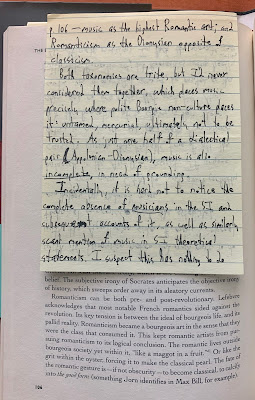 p. 106 — music as the highest Romantic art; and
Romanticism as the Dionysian opposite of
classicism.
Both taxonomies are trite, but I'd never
considered them together, which places music
precisely where polite Borque non-culture places
it: untamed, mercurial, ultimately not to be
trusted. As just one half of a dialectical
pair (Apollonian-Dionysian), music is also
incomplete, in need of grounding.
Incidentally, it is hard not to notice the
complete absence of musicians in the SI and
subsequent accounts of it, as well as similarly
scant mention of music in SI theoretical
statements. I suspect this has nothing to do
THE
belief. The subjective irony of Socrates anticipates the objective irony
of history, which sweeps order away in its aleatory currents.
Romanticism can be both pre- and post-revolutionary. Lefebvre
acknowledges that most notable French romantics sided against the
revolution. Its key tension is between the ideal of bourgeois life, and its
pallid reality. Romanticism became a bourgeois art in the sense that they
were the class that consumed it. This kept romantic artists from pur-
suing romanticism to its logical conclusion. The romantic lives outside
bourgeois society yet within it, "like a maggot in a fruit." Or like the
grit within the oyster, forcing it to make the classical pearl. The fate of
the romantic gesture is — if not obscurity — to become classical, to calcify
into the good form (something Jorn identifies in Max Bill, for example).
106